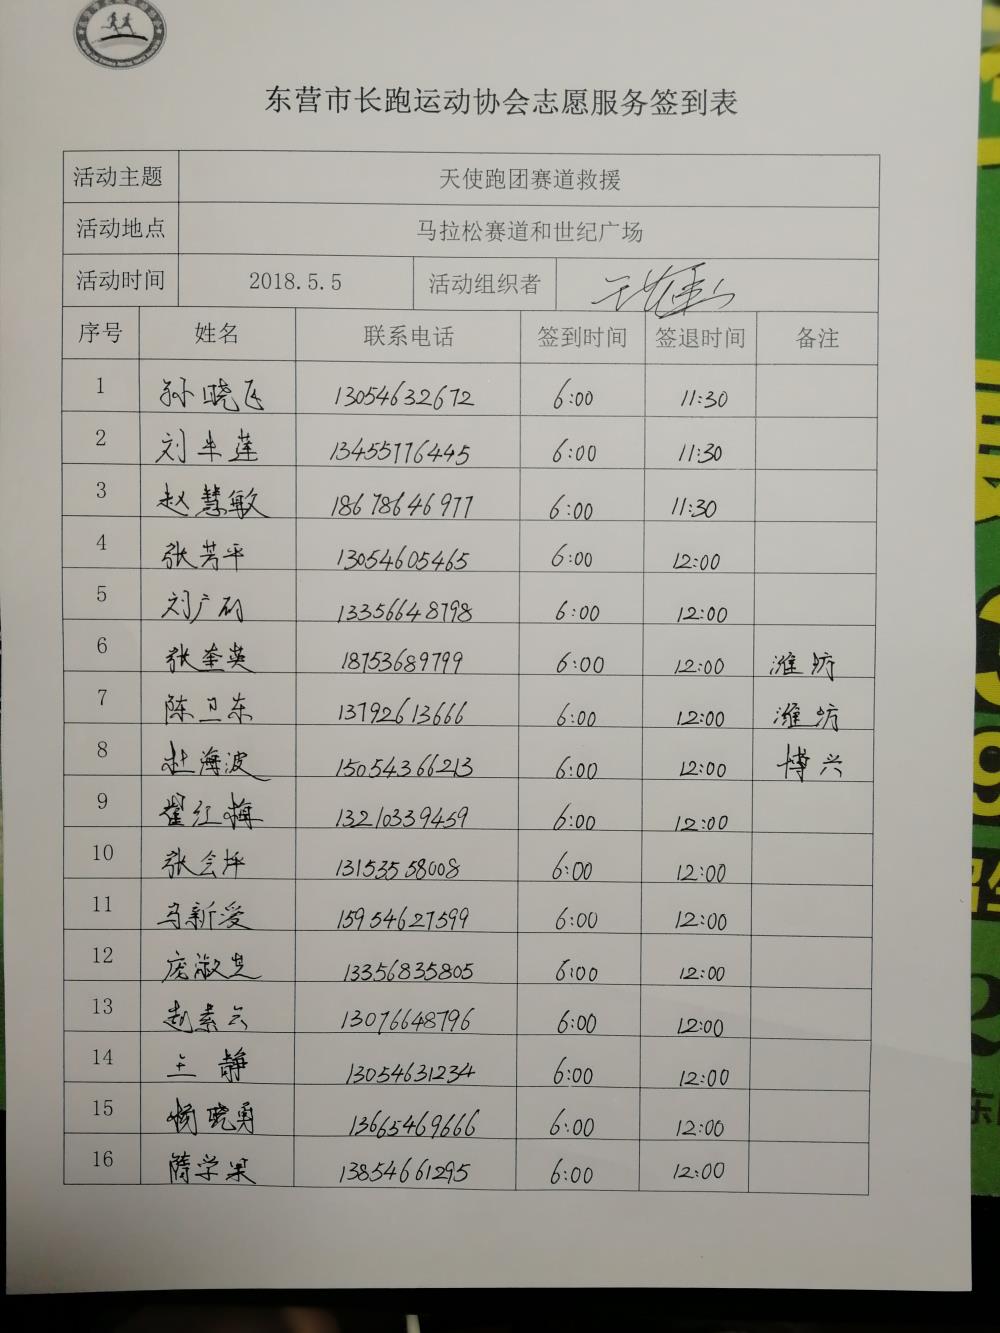 东营市长跑运动协会志愿服务签到表
活动主题 天使跑团赛道救援
活动地点 马拉松赛道和世纪广场
活动时间 2018.5.5 活动组织者
序号 姓名 联系电话 签到时间 签退时间 备注
1 孙晓飞 13054632672 6:00 11:30
2 刘半莲 13455776445 6:00 11:30
3 赵慧敏 18678646977 6:00 11:30
4 张芳平 13054605465 6:00 12:00
5 刘广 13356648798 6:00 12:00
6 张奎英 18753689799 6:00 12:00 潍坊
7 陈卫东 13792613666 6:00 12:00 潍坊
8 杜海波 15054366213 6:00 12:00 博兴
9 翟红梅 13210339459 6:00 12:00
10 张会坪 13153558008 6:00 12:00
11 马新爱 15954627599 6:00 12:00
12 庞淑芝 13356835805 6:00 12:00
13 赵素云 13076648796 6:00 12:00
14 王静 13054631234 6:00 12:00
15 杨晓勇 13665469666 6:00 12:00
16 隋学果 13854661295 6:00 12:00